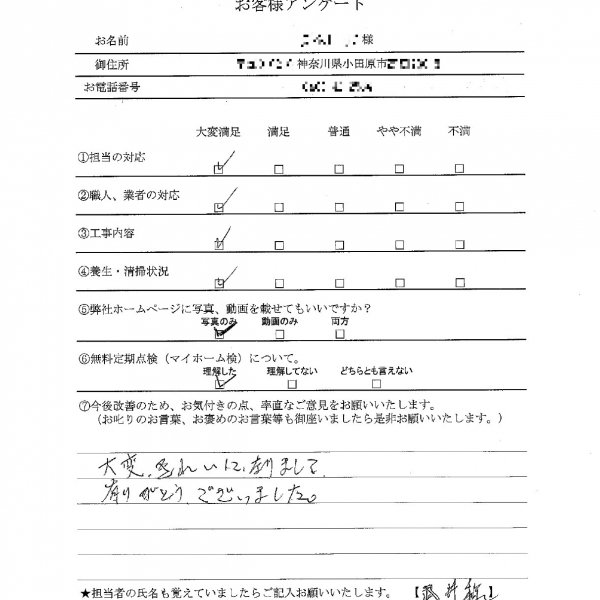 お客様アンケート
お名前 様
御住所 神奈川県小田原市
お電話番号
大変満足 満足 普通 やや不満 不満
①担当の対応
②職人、業者の対応
③工事内容
④養生・清掃状況
⑤弊社ホームページに写真、動画を載せてもいいですか？
写真のみ 動画のみ 両方
⑥無料定期点検（マイホーム検）について。
理解した 理解してない どちらとも言えない
⑦今後改善のため、お気付きの点、率直なご意見をお願いいたします。
（お叱りのお言葉、お褒めのお言葉等も御座いましたら是非お願いいたします。）
大変、きれいに、なりまして、
有りがとう、ございました。
★担当者の氏名も覚えていましたらご記入お願いいたします。【 】